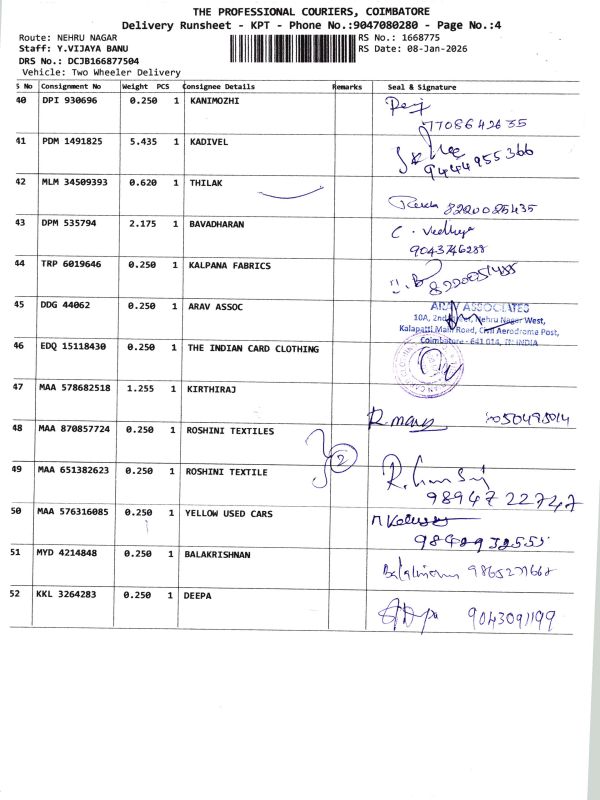 THE PROFESSIONAL COURIERS, COIMBATORE
Delivery Runsheet - KPT - Phone No.:9047080280 - Page No.:4
Route: NEHRU NAGAR
RS No.: 1668775
Staff: Y.VIJAYA BANU
RS Date: 08-Jan-2026
DRS No.: DCJB166877504
Vehicle: Two Wheeler Delivery
S No Consignment No Weight PCS Consignee Details Remarks Seal & Signature
40 DPI 930696 0.250 1 KANIMOZHI
7708642635
41 PDM 1491825 5.435 1 KADIVEL
9444955366
42 MLM 34509393 0.620 1 THILAK
8220085435
43 DPM 535794 2.175 1 BAVADHARAN
C. Vedhya
9043746288
44 TRP 6019646 0.250 1 KALPANA FABRICS
45 DDG 44062 0.250 1 ARAV ASSOC
ARAV ASSOCIATES
10A, 2nd Nehru Nagar West,
Kalapatti Main Road, Civil Aerodrome Post,
Coimbatore - 641 014, INDIA
46 EDQ 15118430 0.250 1 THE INDIAN CARD CLOTHING
47 MAA 578682518 1.255 1 KIRTHIRAJ
48 MAA 870857724 0.250 1 ROSHINI TEXTILES
2
49 MAA 651382623 0.250 1 ROSHINI TEXTILE
9894722747
50 MAA 576316085 0.250 1 YELLOW USED CARS
51 MYD 4214848 0.250 1 BALAKRISHNAN
52 KKL 3264283 0.250 1 DEEPA
Deepa 9043091199